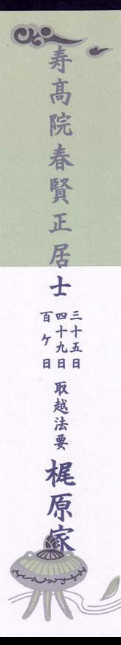 寿髙院春賢正居士
三十五日
四十九日
百ケ日
取越法要
梶原家